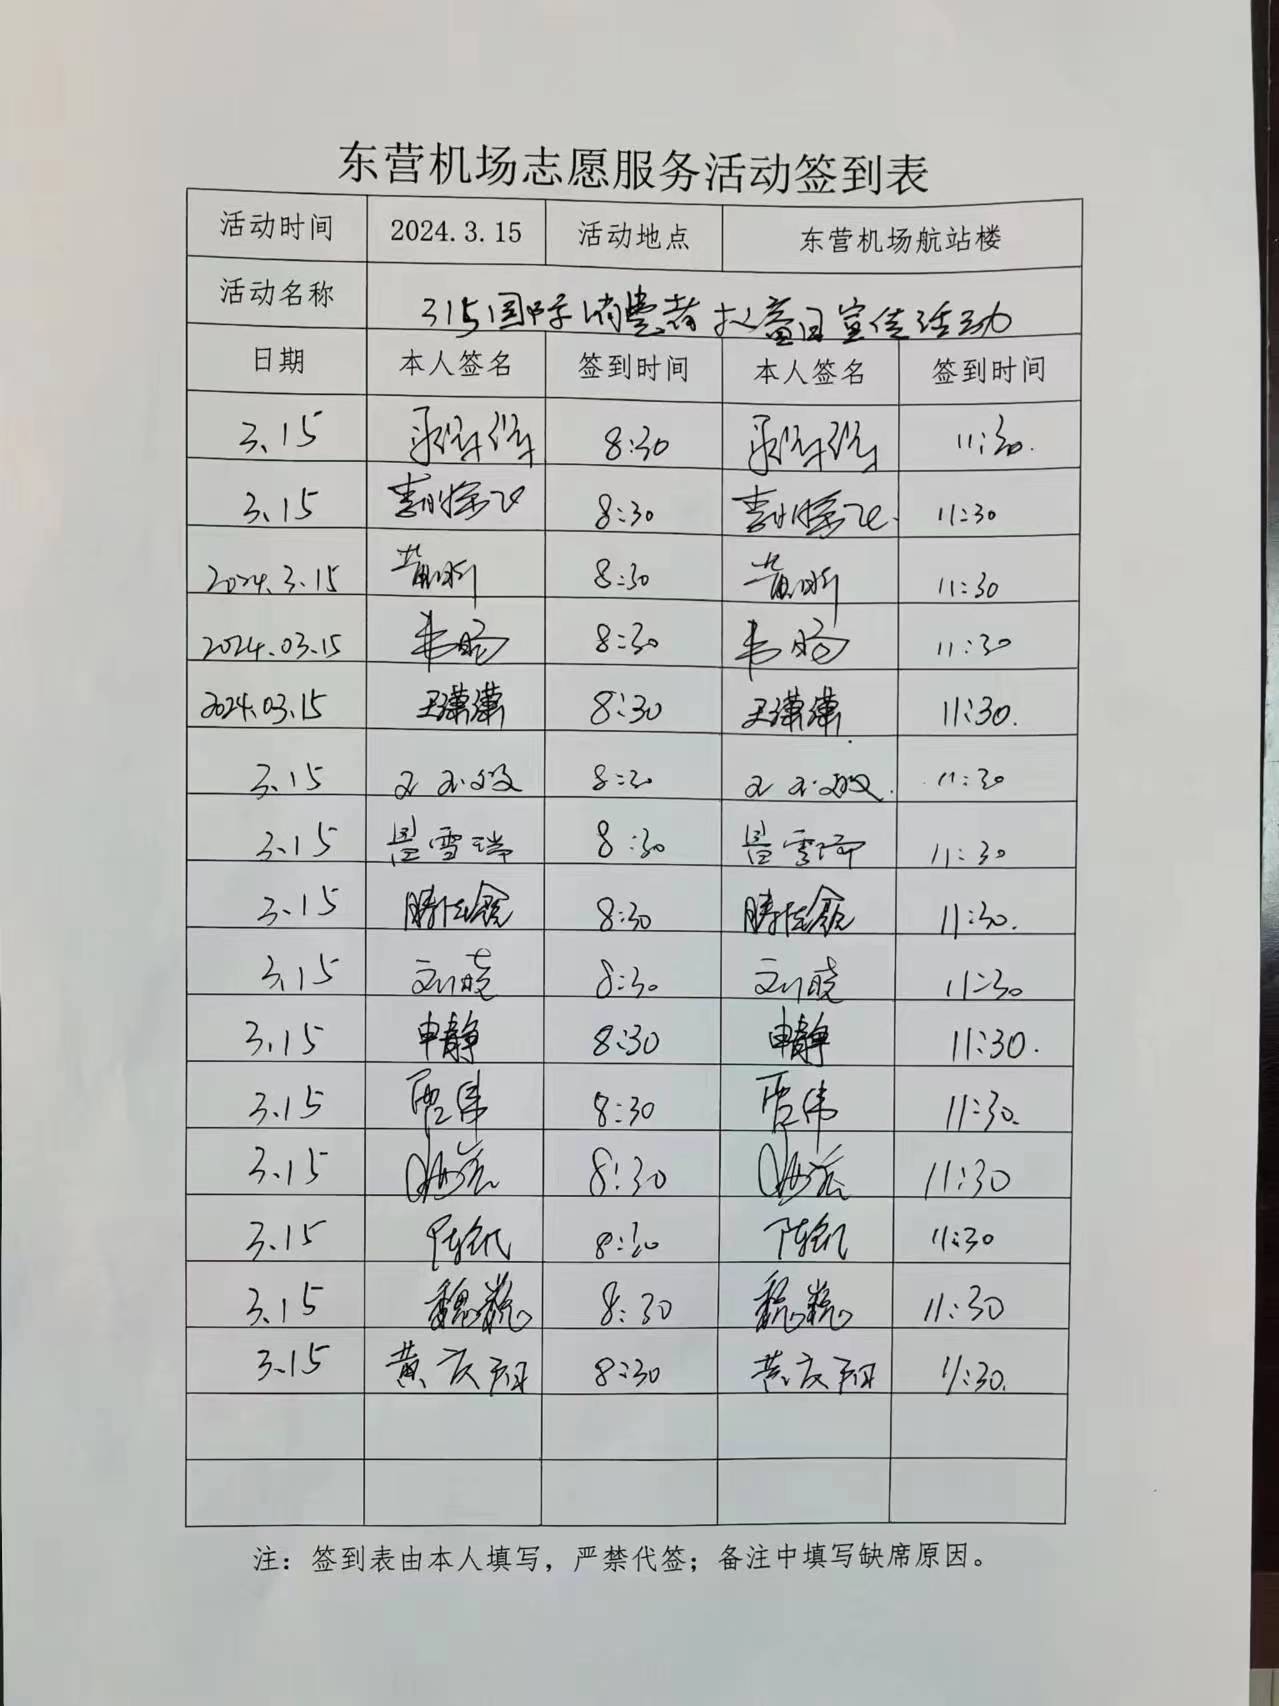 东营机场志愿服务活动签到表
活动时间 2024.3.15 活动地点 东营机场航站楼
活动名称 315国际消费者权益日宣传活动
日期 本人签名 签到时间 本人签名 签到时间
3.15 8:30 11:30.
3.15 8:30 11:30
2024.3.15 黄昕 8:30 黄昕 11:30
2024.03.15 韦旸 8:30 韦旸 11:30
2024.03.15 王潇潇 8:30 王潇潇 11:30.
3.15 8:30 11:30
3.15 昌雪瑞 8:30 昌雪瑞 11:30
3.15 8:30 11:30.
3.15 刘晓 8:30 刘晓 11:30
3.15 申静 8:30 申静 11:30.
3.15 贾伟 8:30 贾伟 11:30.
3.15 8:30 11:30
3.15 陈凯 8:30 陈凯 11:30
3.15 魏巍 8:30 魏巍 11:30
3.15 黄庆翔 8:30 黄庆翔 11:30.
注：签到表由本人填写，严禁代签；备注中填写缺席原因。